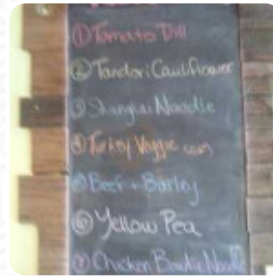 ① Tomato Dill
② Tandori Cauliflower
③ Shangiai Noodle
④ Turkey Veggie
⑤ Beef + Barley
⑥ Yellow Pea
⑦ Chicken Noodle